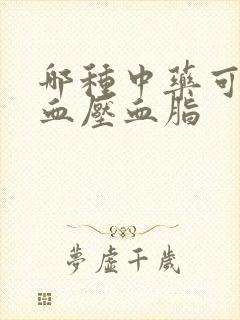 哪種中藥可
血壓血脂
夢虛千歲